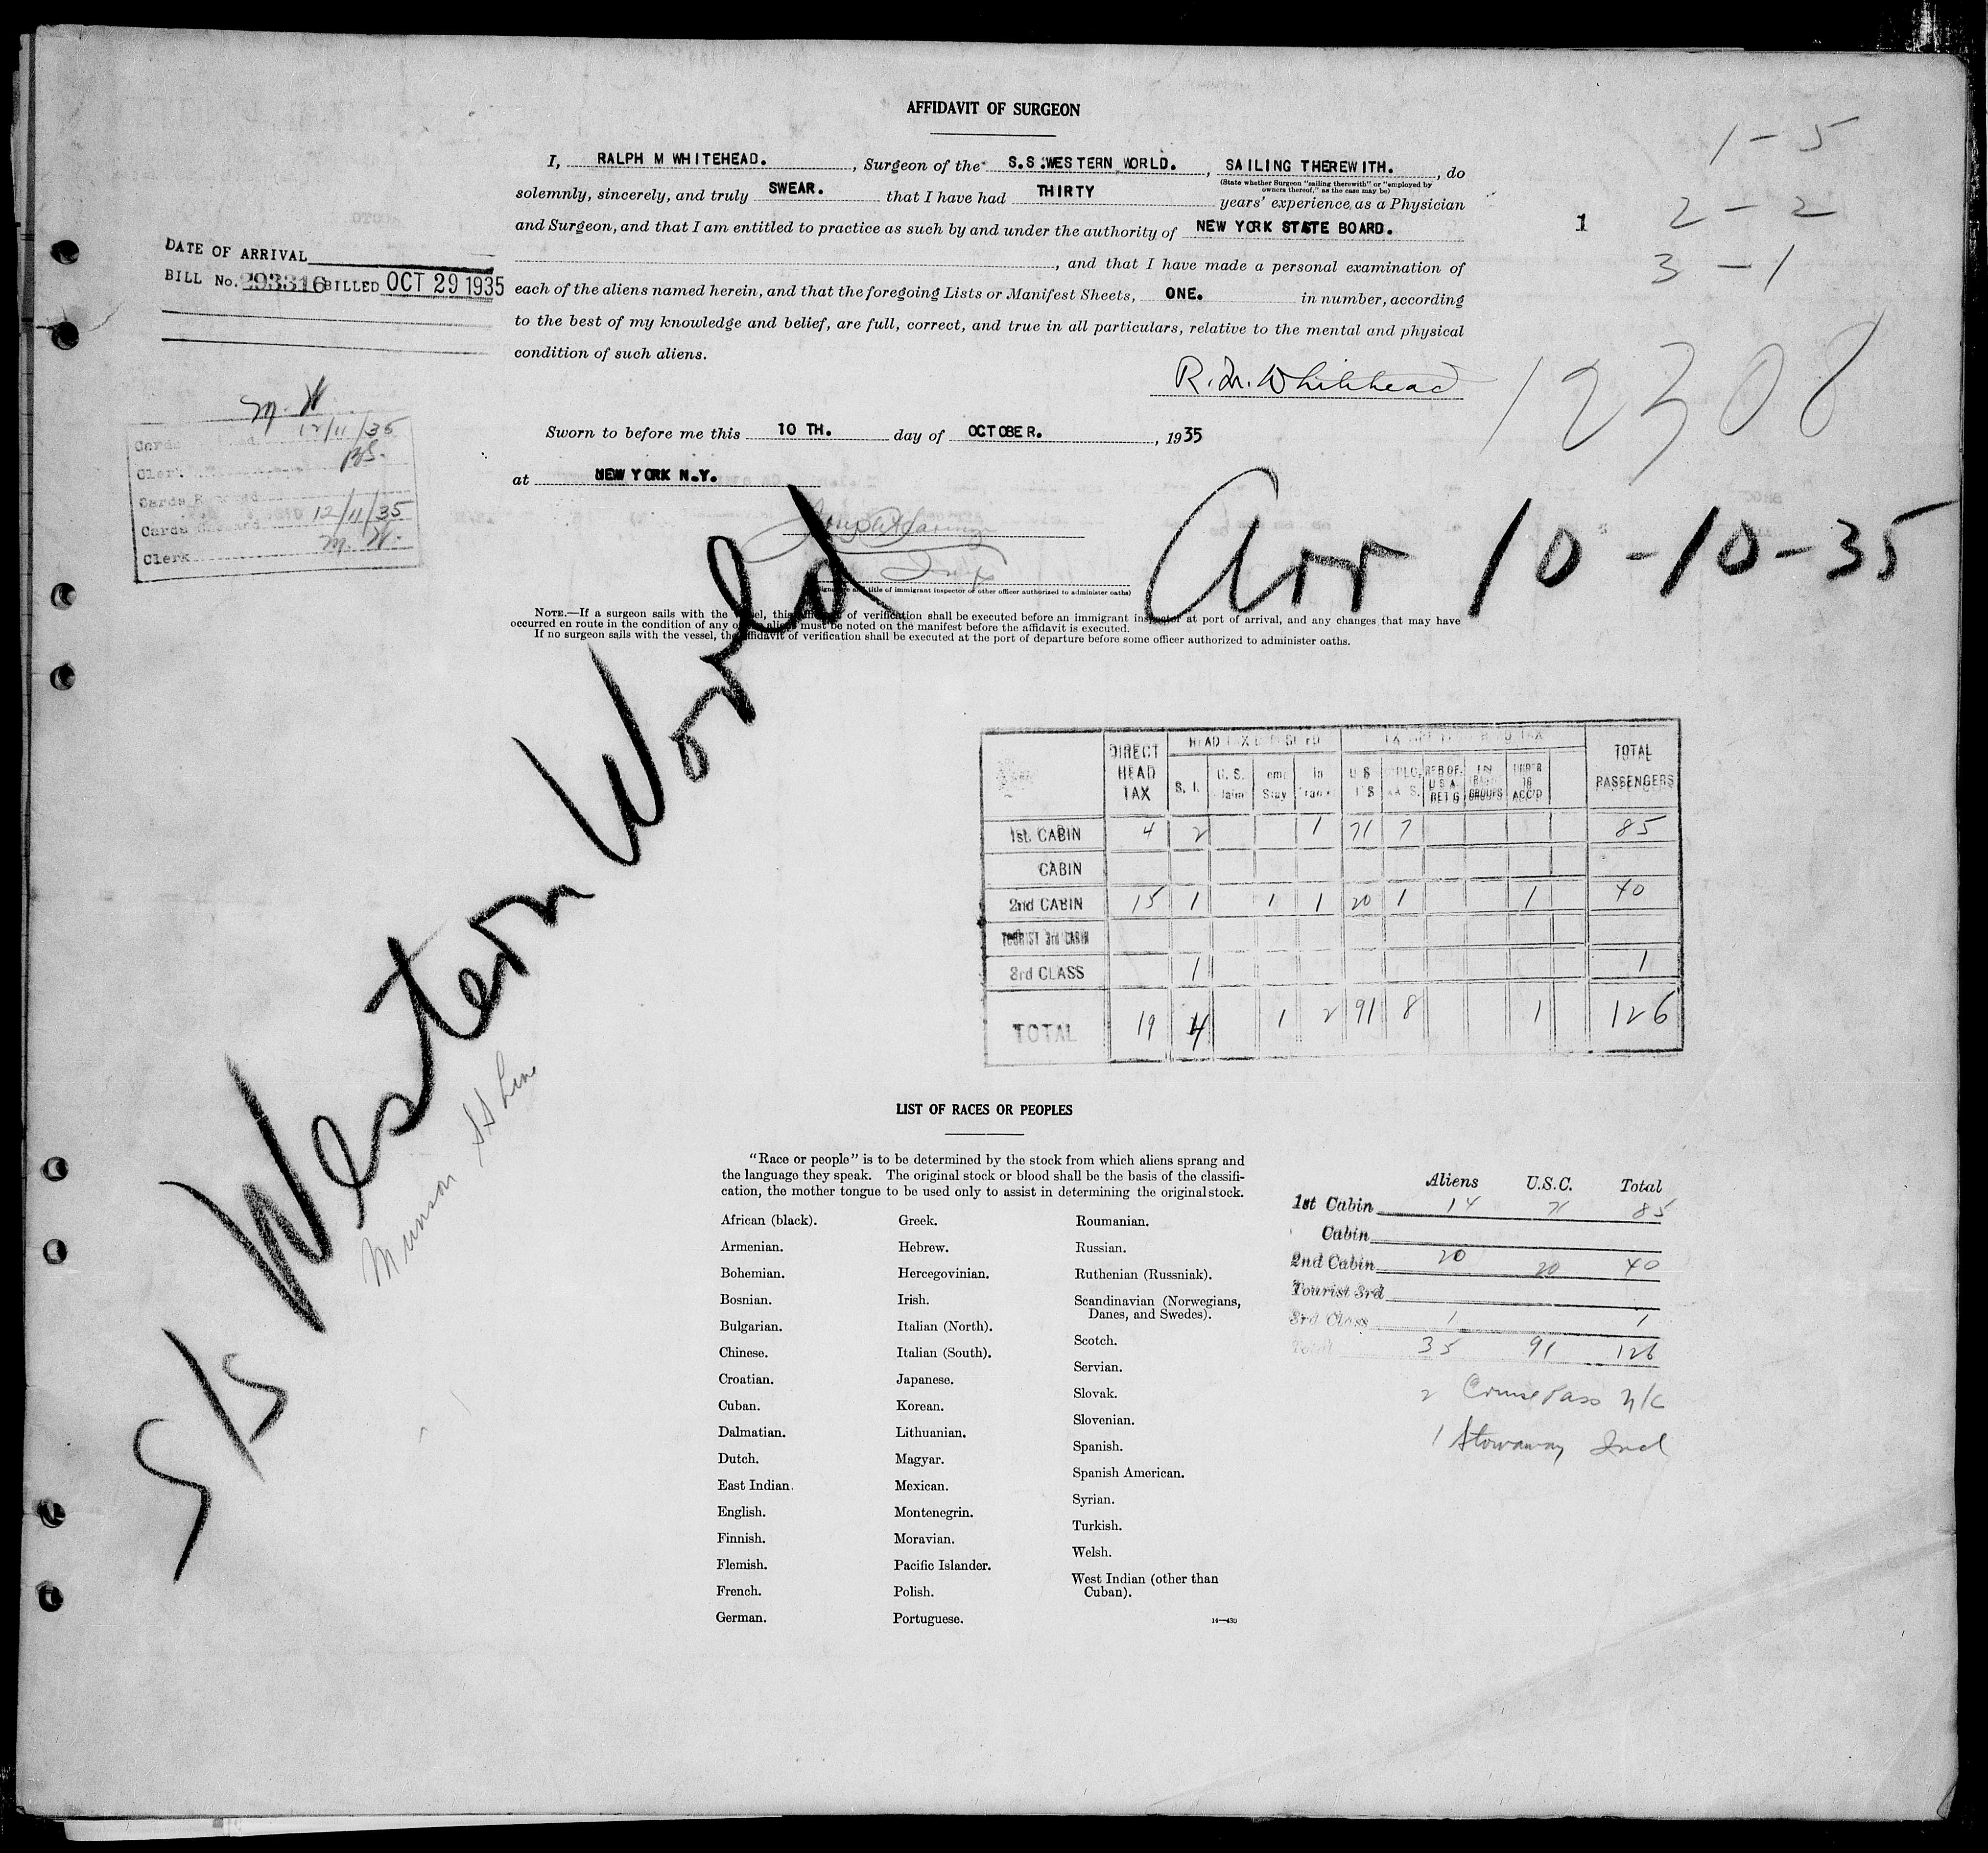 AFFIDAVIT OF SURGEON
I, RALPH M WHITEHEAD. , Surgeon of the S.S.WESTERN WORLD. , SAILING THEREWITH. , do
(State whether Surgeon "sailing therewith" or "employed by owners thereof," as the case may be)
solemnly, sincerely, and truly SWEAR. that I have had THIRTY years' experience as a Physician
and Surgeon, and that I am entitled to practice as such by and under the authority of NEW YORK STATE BOARD.
, and that I have made a personal examination of
each of the aliens named herein, and that the foregoing Lists or Manifest Sheets, ONE. in number, according
to the best of my knowledge and belief, are full, correct, and true in all particulars, relative to the mental and physical
condition of such aliens.
R. M. Whitehead
Sworn to before me this 10 TH. day of OCTOBER. , 1935
at NEW YORK N.Y.
title of immigrant inspector or other officer authorized to administer oaths)
NOTE.—If a surgeon sails with the vessel, this affidavit of verification shall be executed before an immigrant inspector at port of arrival, and any changes that may have
occurred en route in the condition of any of the aliens must be noted on the manifest before the affidavit is executed.
If no surgeon sails with the vessel, the affidavit of verification shall be executed at the port of departure before some officer authorized to administer oaths.
1 - 5
2 - 2
3 - 1
1
12308
Arr 10-10-35
DATE OF ARRIVAL
BILL No. 293316 BILLED OCT 29 1935
M. W.
Cards 12/11/35
Clerk BS.
Cards
Cards 12/11/35
Clerk M. W.
S/S Western World
Munson SS Line
DIRECT HEAD TAX
HEAD TAX
S. I.
U. S.
Stay
In
U S
REB OF U S A RET'G
GROUPS
UNDER 16 ACC'D
TOTAL PASSENGERS
1st. CABIN 4 2 1 71 7 85
CABIN
2nd CABIN 15 1 1 1 20 1 1 40
TOURIST 3rd CABIN
3rd CLASS 1 1
TOTAL 19 4 1 2 91 8 1 126
LIST OF RACES OR PEOPLES
"Race or people" is to be determined by the stock from which aliens sprang and
the language they speak. The original stock or blood shall be the basis of the classifi-
cation, the mother tongue to be used only to assist in determining the original stock.
African (black).
Armenian.
Bohemian.
Bosnian.
Bulgarian.
Chinese.
Croatian.
Cuban.
Dalmatian.
Dutch.
East Indian.
English.
Finnish.
Flemish.
French.
German.
Greek.
Hebrew.
Hercegovinian.
Irish.
Italian (North).
Italian (South).
Japanese.
Korean.
Lithuanian.
Magyar.
Mexican.
Montenegrin.
Moravian.
Pacific Islander.
Polish.
Portuguese.
Roumanian.
Russian.
Ruthenian (Russniak).
Scandinavian (Norwegians,
Danes, and Swedes).
Scotch.
Servian.
Slovak.
Slovenian.
Spanish.
Spanish American.
Syrian.
Turkish.
Welsh.
West Indian (other than
Cuban).
14—430
Aliens U.S.C. Total
1st Cabin 14 71 85
Cabin
2nd Cabin 20 20 40
Tourist 3rd
3rd Class 1 1
Total 35 91 126
2 Cruise Pass N/C
1 Stowaway Incl